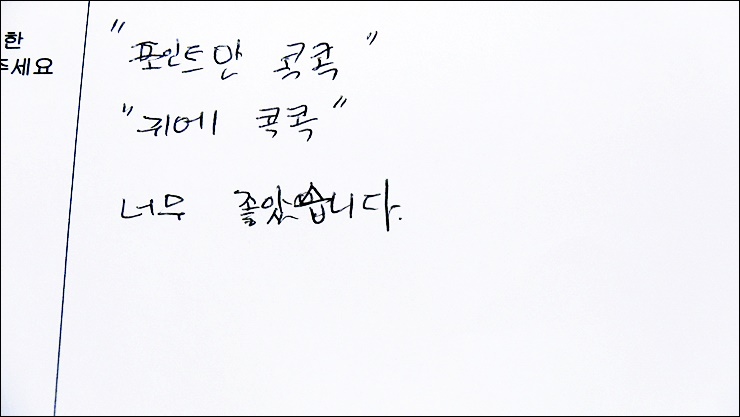 한
주세요
"포인트만 콕콕"
"귀에 콕콕"
너무 좋았습니다.